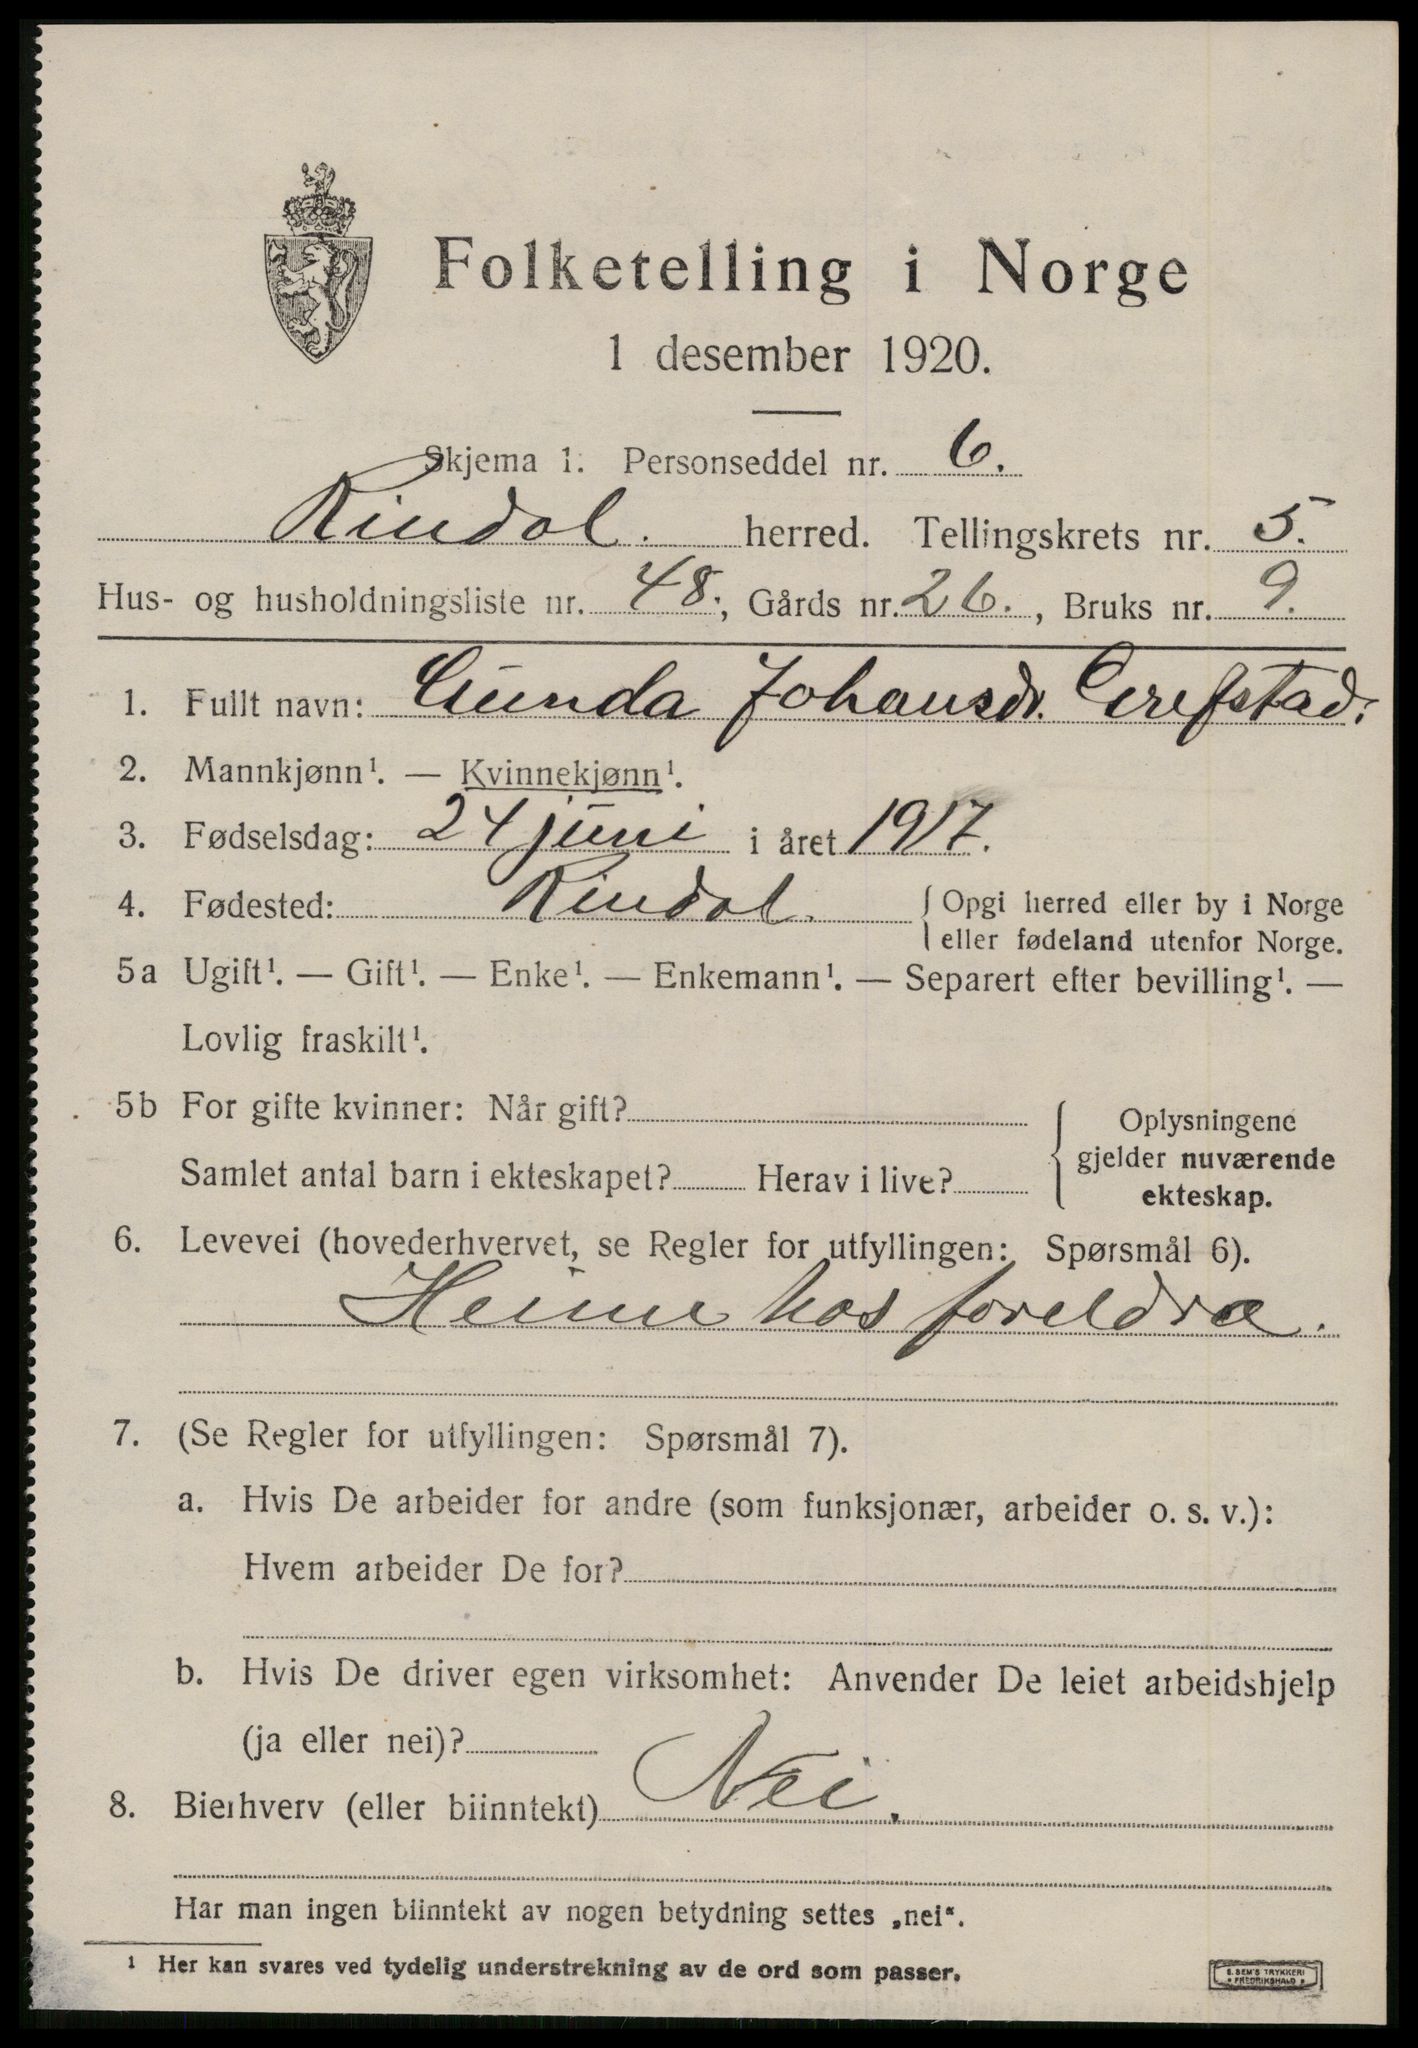 Folketelling i Norge
1 desember 1920.
Skjema 1. Personseddel nr. 6.
Rindal. herred. Tellingskrets nr. 5.
Hus- og husholdningsliste nr. 48., Gårds nr. 26., Bruks nr. 9.
1. Fullt navn: Gunda Johansdr.
2. Mannkjønn¹. — Kvinnekjønn¹.
3. Fødselsdag: 24 juni i året 1917.
4. Fødested: Rindal. { Opgi herred eller by i Norge
eller fødeland utenfor Norge.
5a Ugift¹. — Gift¹. — Enke¹. — Enkemann¹. — Separert efter bevilling¹. —
Lovlig fraskilt¹.
5b For gifte kvinner: Når gift?
Samlet antal barn i ekteskapet? Herav i live?
Oplysningene
gjelder nuværende
ekteskap.
6. Levevei (hovederhvervet, se Regler for utfyllingen: Spørsmål 6).
Heime hos foreldre.
7. (Se Regler for utfyllingen: Spørsmål 7).
a. Hvis De arbeider for andre (som funksjonær, arbeider o. s. v.):
Hvem arbeider De for?
b. Hvis De driver egen virksomhet: Anvender De leiet arbeidshjelp
(ja eller nei)?
8. Bierhverv (eller biinntekt) Nei.
Har man ingen biinntekt av nogen betydning settes „nei“.
¹ Her kan svares ved tydelig understrekning av de ord som passer.
E. SEM'S TRYKKERI
FREDRIKSHALD